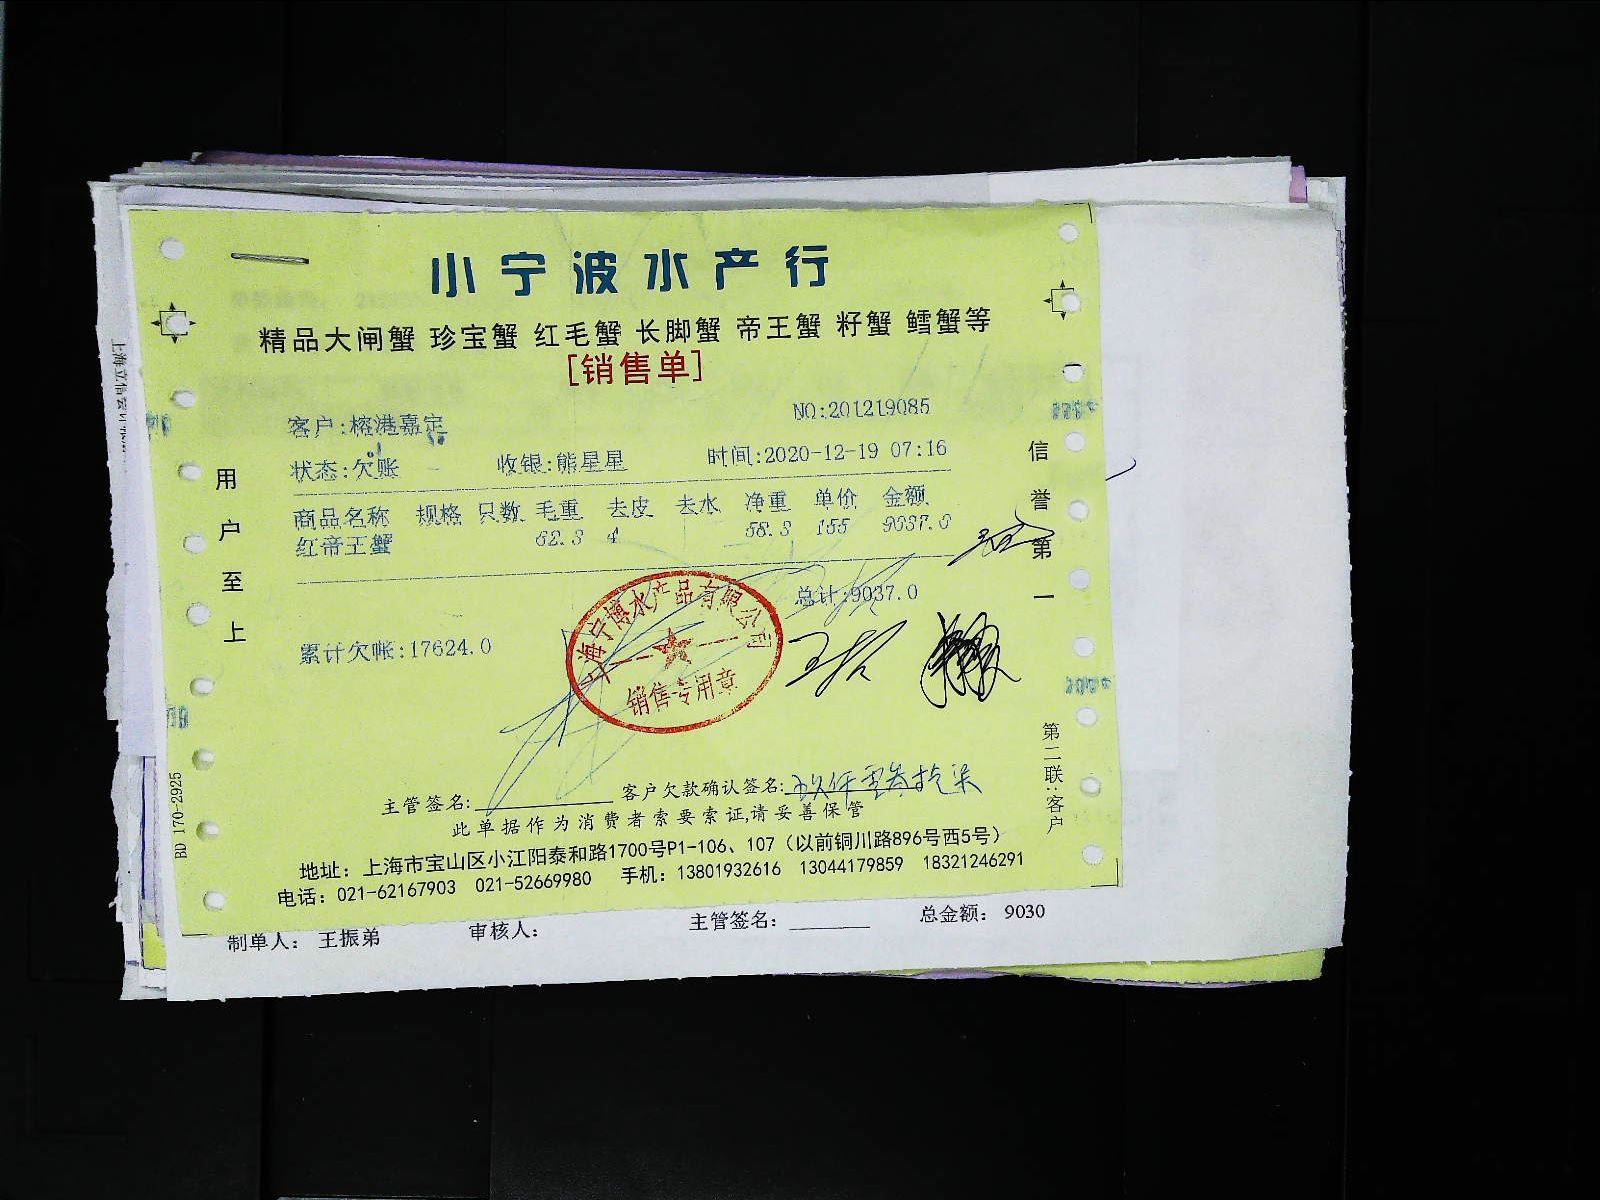 小宁波水产行
精品大闸蟹 珍宝蟹 红毛蟹 长脚蟹 帝王蟹 籽蟹 鳕蟹等
[销售单]
NO:201219085
客户:榕港嘉定
状态:欠账 收银:熊星星 时间:2020-12-19 07:16
商品名称 规格 只数 毛重 去皮 去水 净重 单价 金额
红帝王蟹 62.3 4 58.3 155 9037.0
总计:9037.0
累计欠帐:17624.0
上海宁博水产品有限公司
销售专用章
用户至上
信誉第一
第二联:客户
BD 170-2925
主管签名: 客户欠款确认签名:玖仟零叁拾柒
此单据作为消费者索要索证,请妥善保管
地址：上海市宝山区小江阳泰和路1700号P1-106、107（以前铜川路896号西5号）
电话：021-62167903 021-52669980 手机：13801932616 13044179859 18321246291
制单人： 王振弟 审核人： 主管签名： 总金额： 9030